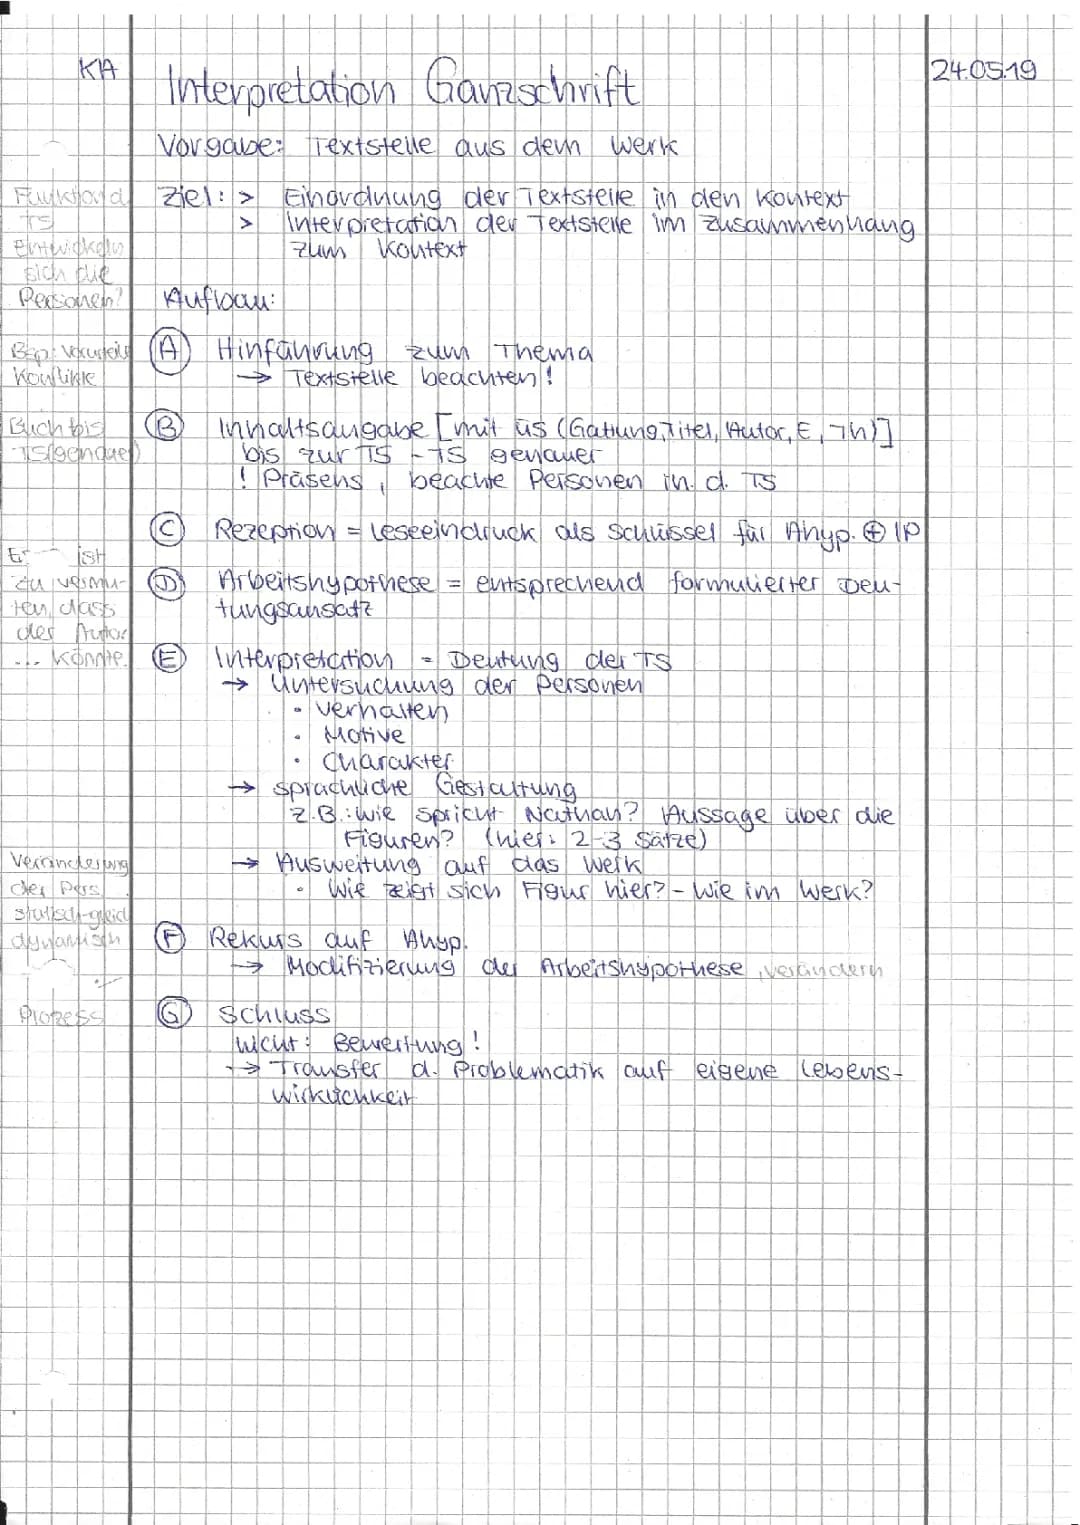 KA
Interpretation Ganzschrift
24.05.19
Vorgabe: Textstelle aus dem Werk
Ziel: > Einordnung der Textstelle in den Kontext
> Interpretation der Textstelle im Zusammenhang
zum Kontext
Funktion d.
TS
Entwickeln
sich die
Personen?
Aufbau:
Bsp: Vorurteile
Konflikte
(A) Hinführung zum Thema
→ Textstelle beachten!
Buch bis
TS (genauer)
(B) Inhaltsangabe [mit ÜS (Gattung, Titel, Autor, E, Th)]
bis zur TS - TS genauer
! Präsens, beachte Personen in d. TS
(C) Rezeption = Leseeindruck als Schlüssel für Ahyp. ⊕ IP
Es ist
zu vermu-
ten, dass
der Autor
... könnte.
(D) Arbeitshypothese = entsprechend formulierter Deu-
tungsansatz
(E) Interpretation = Deutung der TS
→ Untersuchung der Personen
• Verhalten
• Motive
• Charakter
→ sprachliche Gestaltung
z.B.: Wie spricht Nathan? Aussage über die
Figuren? (hier: 2-3 Sätze)
→ Ausweitung auf das Werk
• Wie zeigt sich Figur hier? - Wie im Werk?
Veränderung
der Pers.
statisch-gleich
dynamisch
(F) Rekurs auf Ahyp.
→ Modifizierung der Arbeitshypothese, verändern
Prozess
(G) Schluss
Nicht: Bewertung!
→ Transfer d. Problematik auf eigene Lebens-
wirklichkeit